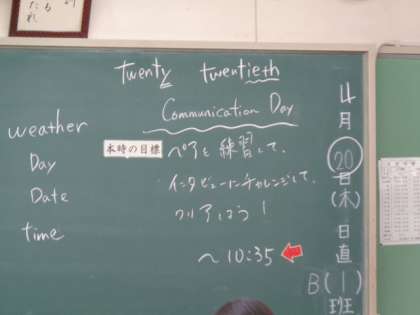 twenty twentieth
Communication Day
weather
Day
Date
time
本時の目標
ペアを練習して、
インタビューにチャレンジして、
クリアしよう!
〜10:35
4月20日(木)
日直
B(1)班